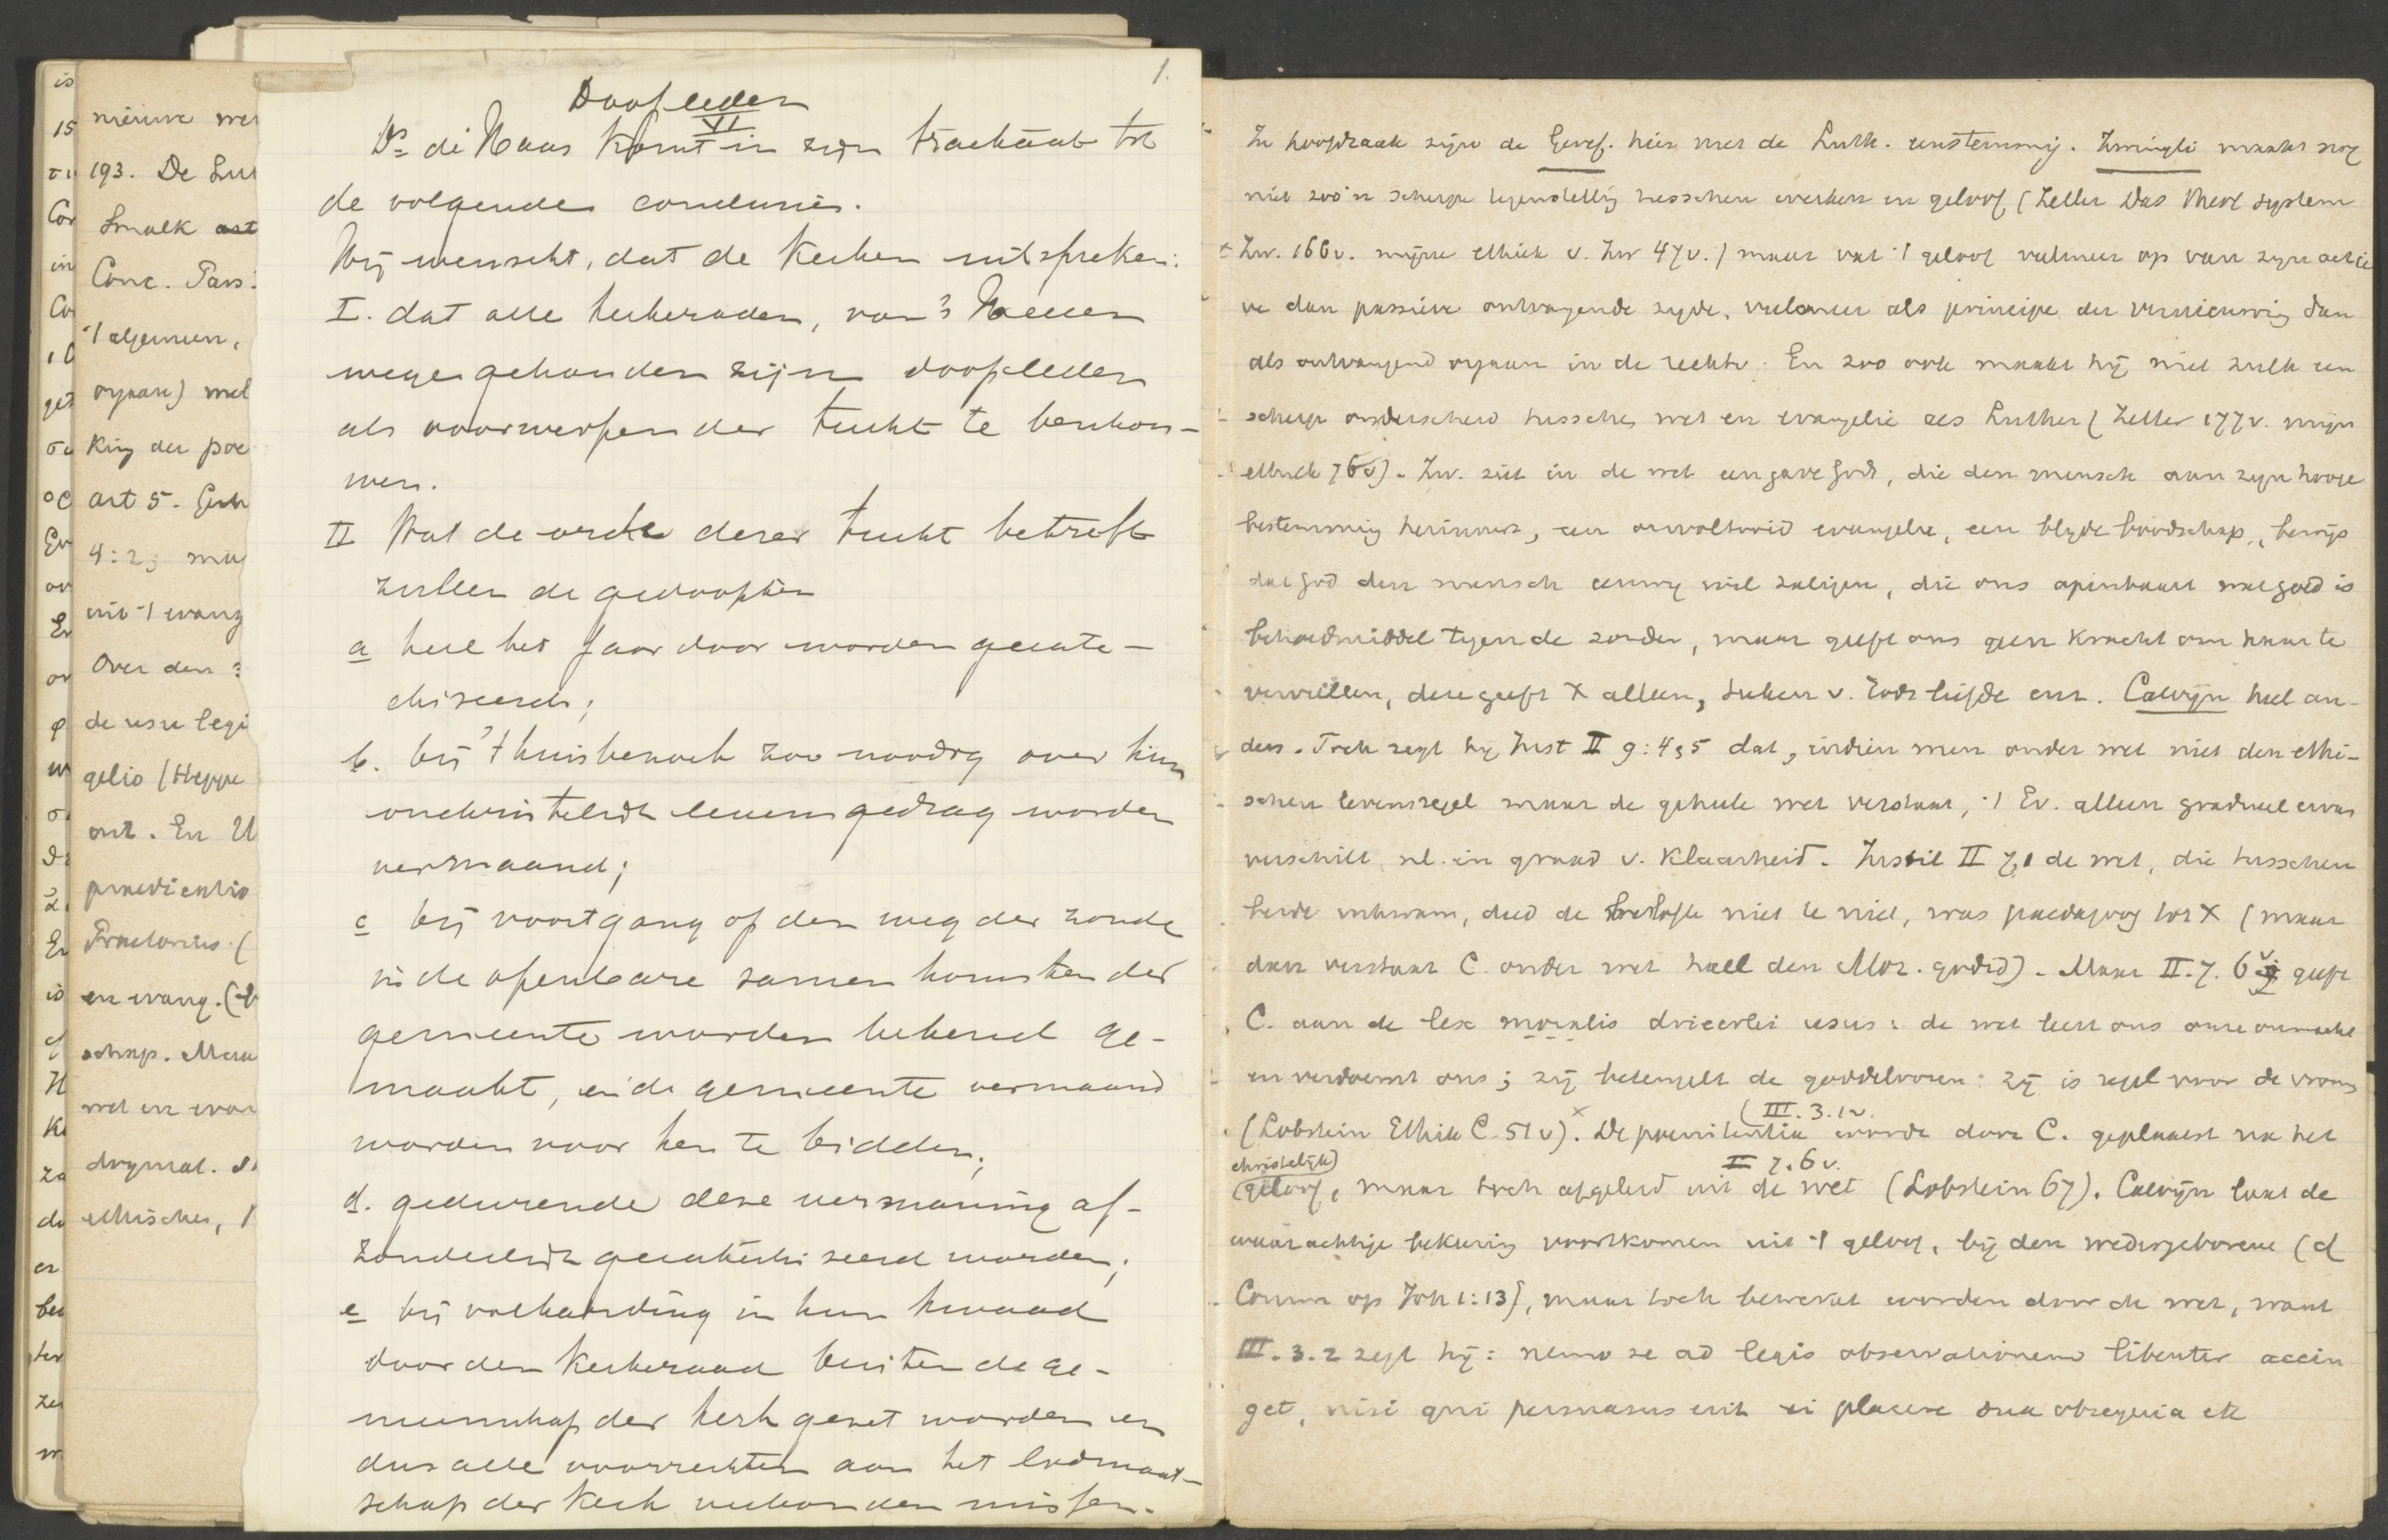 1.
Doopleden
VI
Ds de Haas komt in zijn tractaat tot
de volgende conclusies.
Hij wenscht, dat de kerken uitspreken:
I. dat alle kerkeraden, van 's Heeren
wege gehouden zijn doopleden
als voorwerpen der tucht te beschou-
wen.
II Wat de orde dezer tucht betreft
zullen de gedoopten
a heel het jaar door worden gecate-
chiseerd;
b. bij 't huisbezoek zoo noodig over hun
onchristelijk levensgedrag worden
vermaand;
c bij voortgang op den weg der zonde
in de openbare samenkomsten der
gemeente worden bekend ge-
maakt, en de gemeente vermaand
worden voor hen te bidden;
d. gedurende deze vermaning af-
zonderlijk gecatechiseerd worden;
e bij volharding in hun kwaad
door den kerkeraad buiten de ge-
meenschap der kerk gezet worden en
dus alle voorrechten aan het lidmaat-
schap der kerk verbonden missen.
nieuwe
193. De
Smalk
Conc.
't algemeen,
orgaan)
king der
art 5.
4:2;
uit 't evang
Over den
de usu legi
gelio (Heppe
ont. En
praedicatio
en evang.
schap.
wet en evan
dogmat.
ethischer,
In hoofdzaak zijn de Geref. hier met de Luth. eenstemmig. Zwingli maakt nog
niet zoo'n scherpe tegenstelling tusschen werken en geloof (Zeller Das theol System
Zw. 166v. mijne ethiek v. Zw 47v.) maar vat 't geloof veelmeer op van zijn actie
ve dan passieve ontvangende zijde, veelmeer als principe der vernieuwing dan
als ontvangend orgaan in de rechtv. En zoo ook maakt hij niet zulk een
scherp onderscheid tusschen wet en evangelie als Luther (Zeller 177v. mijn
ethiek 76v). Zw. ziet in de wet een gave Gods, die den mensch aan zijn hooge
bestemming herinnert, een onvoltooid evangelie, een blijde boodschap, bewijs
dat God den mensch eeuwig wil zaligen, die ons openbaart wat goed is
behoedmiddel tegen de zonden, maar geeft ons geen kracht om haar te
vervullen, deze geeft X alleen, v. Gods liefde enz. Calvijn heel an-
ders. Toch zegt hij Inst II 9:4,5 dat, indien men onder wet niet den ethi-
schen levensregel maar de geheele wet verstaat, 't Ev. alleen gradueel ervan
verschilt nl. in graad v. klaarheid. II 7,1 de wet, die tusschen
beide inkwam, deed de belofte niet te niet, was paedagoog tot X (maar
dan verstaat C. onder wet heel den Moz. godsd). Maar II. 7. 6v geeft
C. aan de lex moralis drieerlei usus: de wet leert ons onze onmacht
en verdoemt ons; zij beteugelt de goddeloozen: zij is regel voor de vrom
(III. 3. 1v.
(Lobstein Ethik C. 51v). De poenitentia wordt door C. geplaatst na het
christelijk) II 7. 6v.
(geloof, maar toch afgeleid uit de wet (Lobstein 67). Calvijn laat de
waarachtige bekeering voortkomen uit 't geloof, bij den wedergeborene (cf
Comm op Joh 1:13), maar toch bewerkt worden door de wet, want
III. 3. 2 zegt hij: nemo se ad legis observationem libenter accin
get, nisi qui persuasus erit ei placere sua obsequia etc